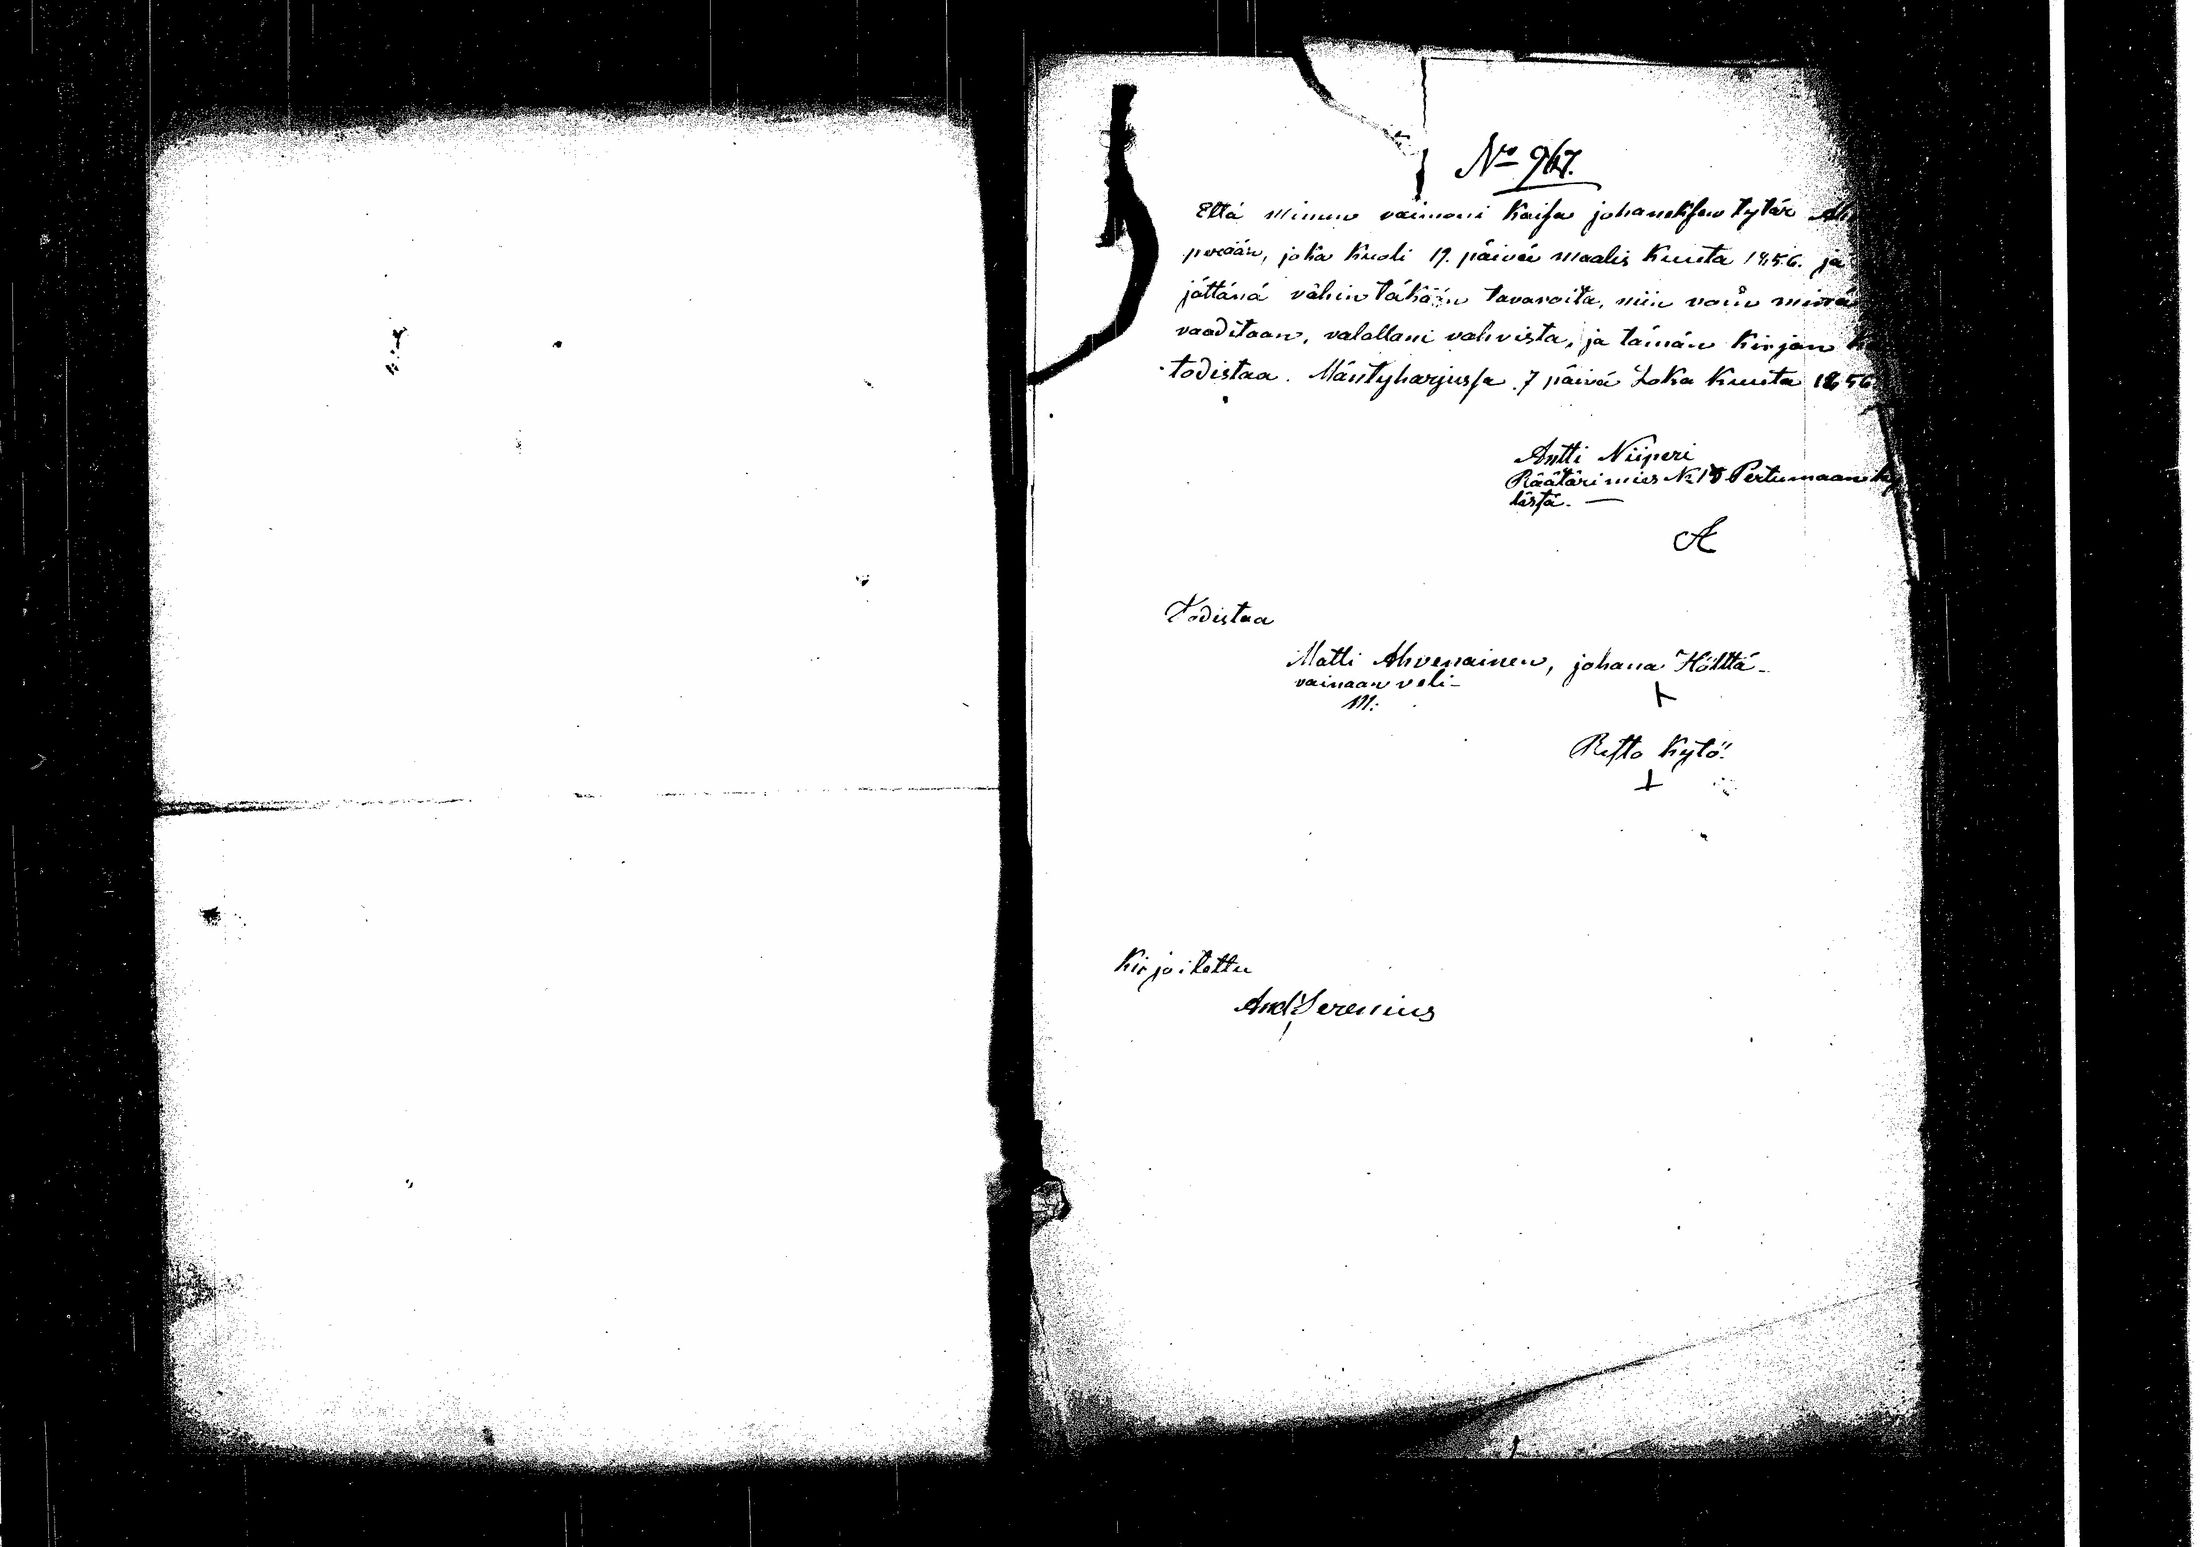 No 967.
Että minun vaimoni Kaisa johaneksen tytär Ah
perään, joka kuoli 19. päivä maalis kuuta 1856. jä
jättänä vähin täkään tavaroita, niin voin minä
vaaditaan, valallani vahvista, ja tämän kirjan k
todistaa. Mäntyharjussa 7 päivä Loka kuuta 1856.
Antti Niiperi
Räätäri mies No 18 Pertumaan ky
lästä.
A
Todistaa
Matti Ahvenainen, johana Hölttä
vainaan veli
M:
Risto Kytö
Kirjoitettu
And: Serenius